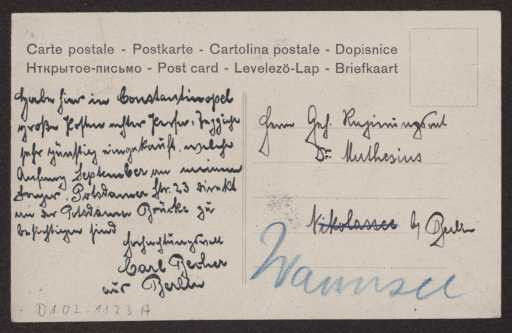 Carte postale - Postkarte - Cartolina postale - Dopisnice
Нткрытое-письмо - Post card - Levelező-Lap - Briefkaart
Habe hier in Constantinopel
große Posten echter Perser-Teppiche
sehr günstig eingekauft, welche
Anfang September an meinem
Lager, Potsdamer Str. 23 direkt
an der Potsdamer Brücke zu
besichtigen sind
Hochachtungsvoll
Carl
aus Berlin
Herrn Geh. Regierungsrat
Dr. Muthesius
Nikolassee b/ Berlin
Wannsee
D 102-1123 A